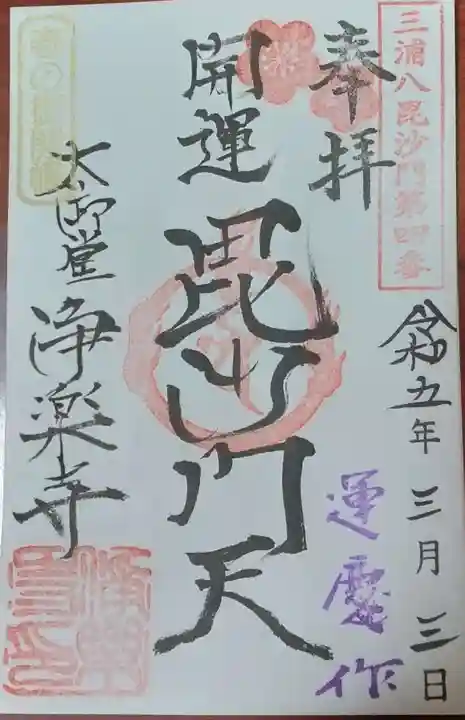 三浦八毘沙門第四番
奉拝
令和五年三月三日
運慶作
開運
毘沙門天
大御堂
浄楽寺